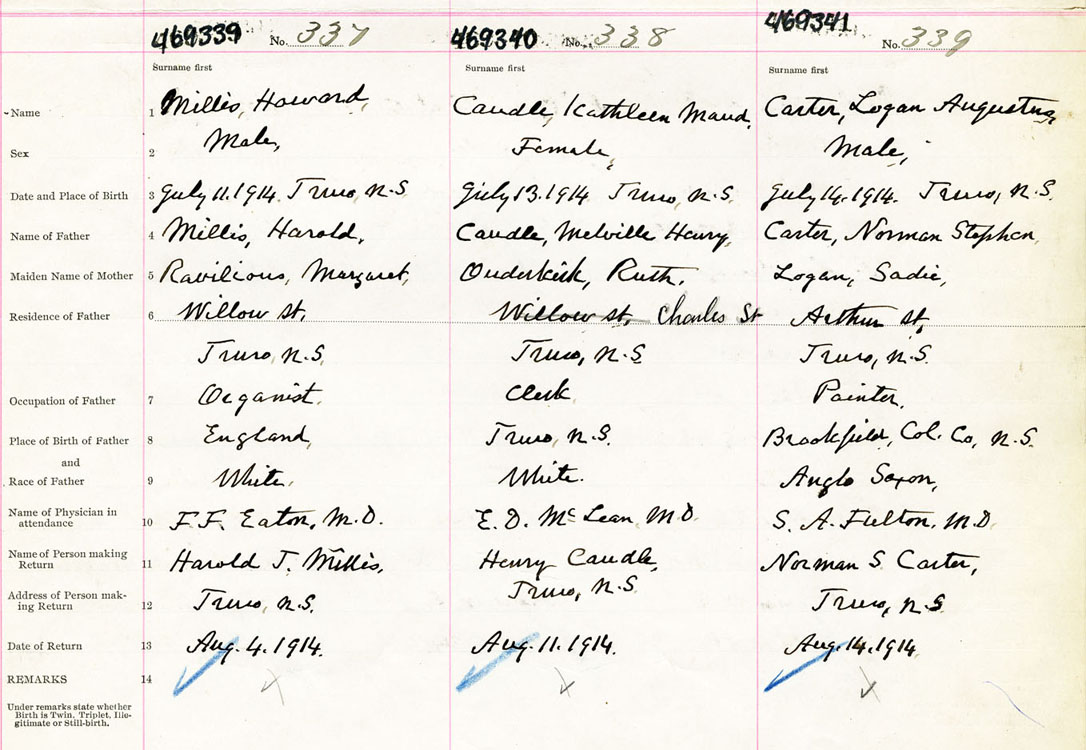 469339 No. 337 469340 No. 338 469341 No. 339
Surname first Surname first Surname first
Name 1 Millis, Howard, Caudle, Kathleen Maud, Carter, Logan Augustus,
Sex 2 Male, Female, Male,
Date and Place of Birth 3 July 11. 1914 Truro, N.S July 13. 1914 Truro, N.S. July 14. 1914. Truro, N.S.
Name of Father 4 Millis, Harold, Caudle, Melville Henry, Carter, Norman Stephen,
Maiden Name of Mother 5 Ravilious, Margaret, Ouderkirk, Ruth. Logan, Sadie,
Residence of Father 6 Willow St, Willow St, Charles St Arthur St,
Truro, N.S. Truro, N.S Truro, N.S.
Occupation of Father 7 Organist. Clerk Painter.
Place of Birth of Father 8 England, Truro, N.S. Brookfield, Col. Co, N.S.
and
Race of Father 9 White. White. Anglo Saxon,
Name of Physician in
attendance 10 F.F. Eaton, M.D. E. D. McLean, M.D S. A. Fulton, M.D.
Name of Person making
Return 11 Harold J. Millis, Henry Caudle, Norman S. Carter,
Address of Person mak-
ing Return 12 Truro, N.S. Truro, N.S Truro, N.S
Date of Return 13 Aug. 4. 1914. Aug. 11. 1914. Aug. 14. 1914
REMARKS 14
Under remarks state whether
Birth is Twin, Triplet, Ille-
gitimate or Still-birth.